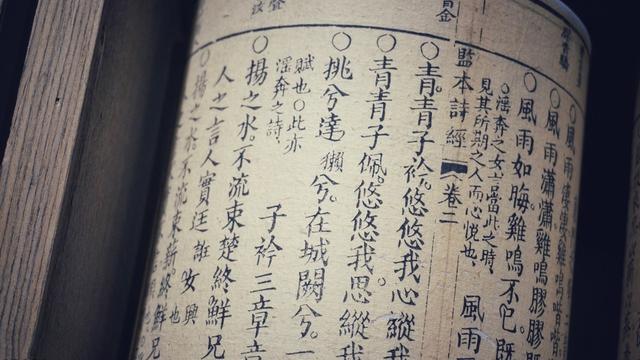 ○風雨淒淒雞鳴喈喈
○風雨瀟瀟雞鳴膠膠
○風雨如晦雞鳴不已既
○淫奔之女言當此之時
見其所期之人而心悅也、
風雨
監本詩經
卷二
○青青子衿。悠悠我心縱
○青青子佩。悠悠我思。縱我
○挑兮達獺兮。在城闕兮。一
賦也○此亦
淫奔之詩、
子衿三章章
○揚之水。不流束楚終鮮兄
人之言人實廷誑女
興也
○揚之水不流束薪。終鮮兄